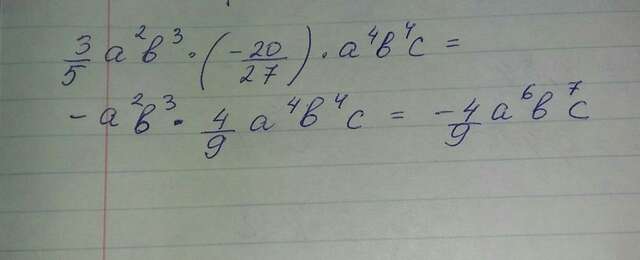 3/5 a²b³ · (-20/27) · a⁴b⁴c =
- a²b³ · 4/9 a⁴b⁴c = -4/9 a⁶b⁷c